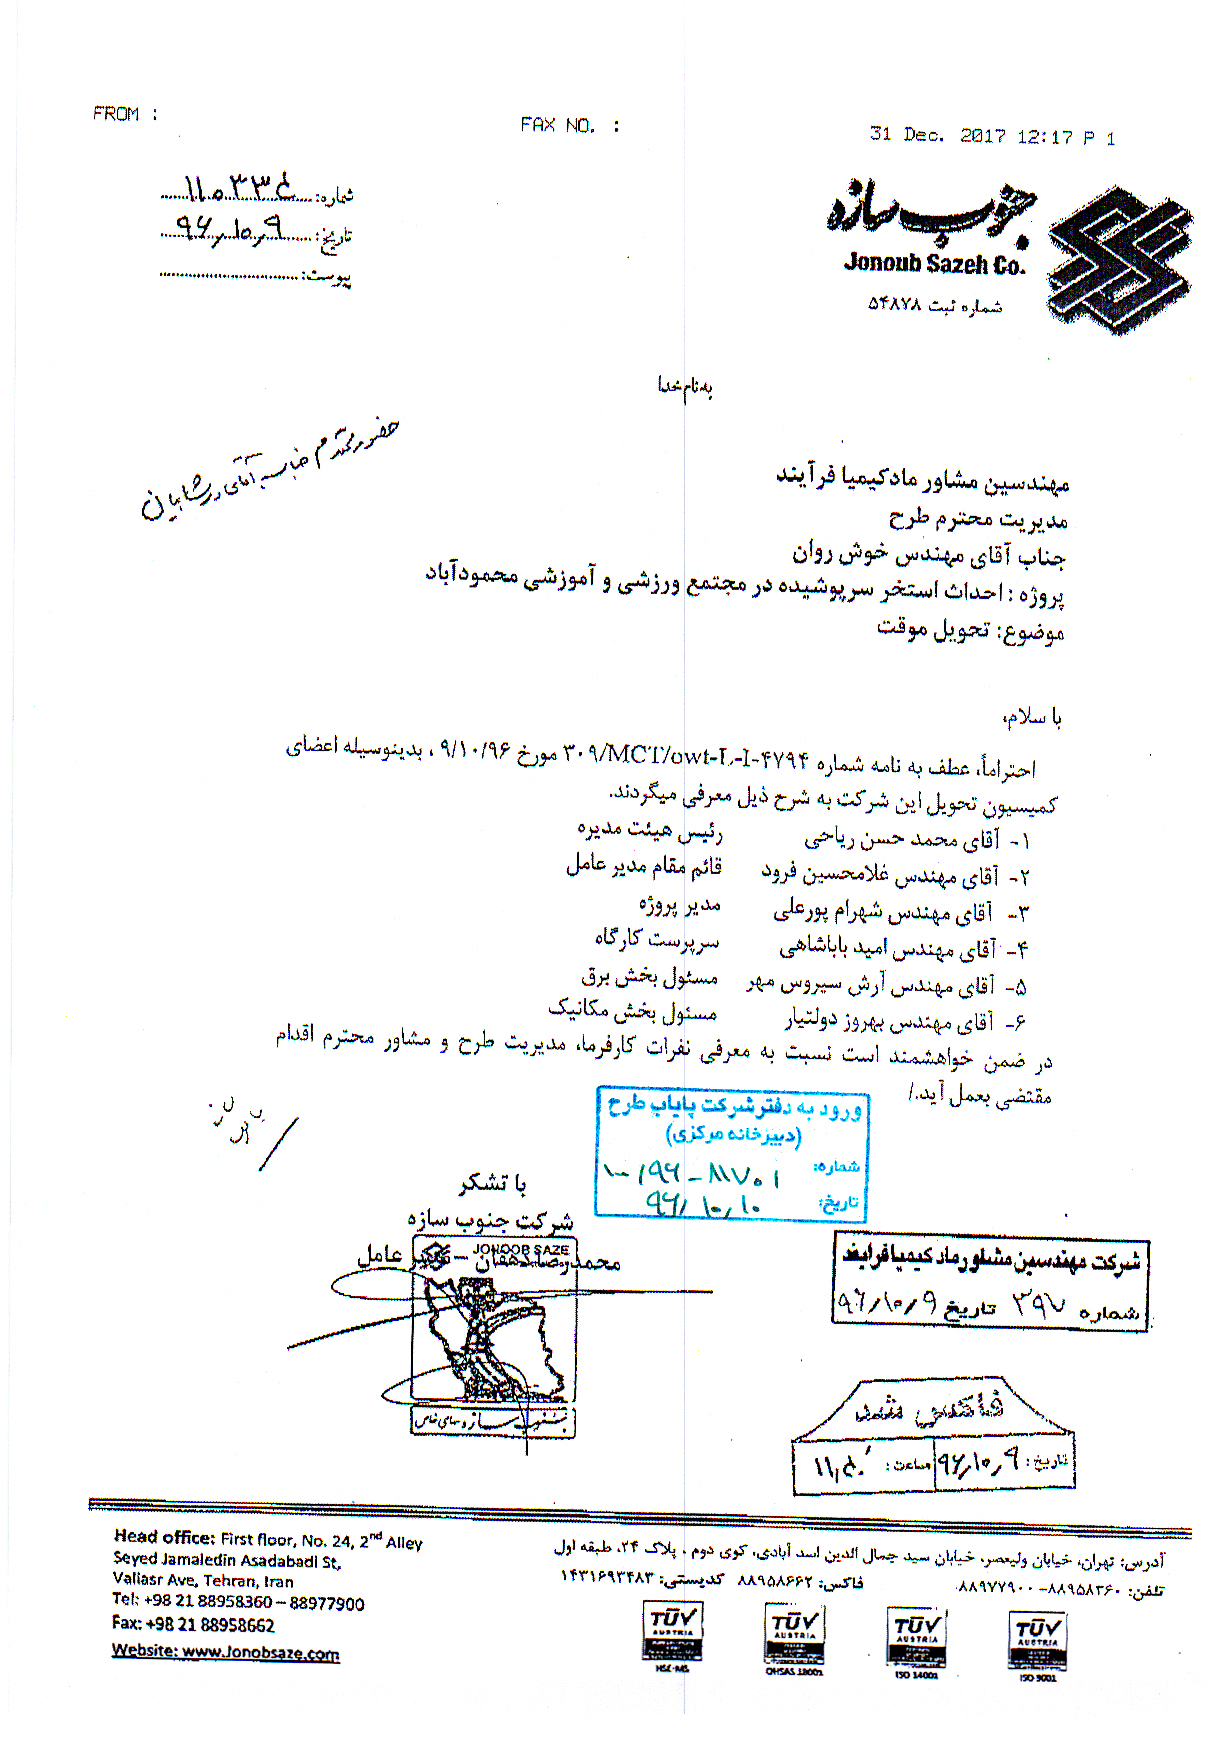 FROM :
FAX NO. :
31 Dec. 2017 12:17 P 1
شماره: ۱۱۰۳۳۴
تاریخ: ۹۶,۱۰,۹
پیوست:
جنوب سازه
Jonoub Sazeh Co.
شماره ثبت ۵۴۸۷۸
به نام خدا
حضور محترم جناب آقای
مهندسین مشاور ماد کیمیا فرآیند
مدیریت محترم طرح
جناب آقای مهندس خوش روان
پروژه : احداث استخر سرپوشیده در مجتمع ورزشی و آموزشی محمودآباد
موضوع: تحویل موقت
با سلام،
احتراماً، عطف به نامه شماره ۳۰۹/MCT/owt-L-I-۴۷۹۴ مورخ ۹/۱۰/۹۶ ، بدینوسیله اعضای
کمیسیون تحویل این شرکت به شرح ذیل معرفی میگردند.
۱- آقای محمد حسن ریاحی رئیس هیئت مدیره
۲- آقای مهندس غلامحسین فرود قائم مقام مدیر عامل
۳- آقای مهندس شهرام پورعلی مدیر پروژه
۴- آقای مهندس امید باباشاهی سرپرست کارگاه
۵- آقای مهندس آرش سیروس مهر مسئول بخش برق
۶- آقای مهندس بهروز دولتیار مسئول بخش مکانیک
در ضمن خواهشمند است نسبت به معرفی نفرات کارفرما، مدیریت طرح و مشاور محترم اقدام
مقتضی بعمل آید./
ورود به دفتر شرکت پایاب طرح
(دبیرخانه مرکزی)
شماره: ۱۰۰/۹۶-۸۱۷۰۱
تاریخ: ۹۶/۱۰/۱۰
با تشکر
شرکت جنوب سازه
محمدرضا دهقان - مدیر عامل
JONOOB SAZE
جنوب سازه سهامی خاص
شرکت مهندسین مشاور ماد کیمیا فرایند
شماره ۳۹۷ تاریخ ۹۶/۱۰/۹
فاکس شد
تاریخ: ۹۶,۱۰,۹ ساعت: ۱۱,۴۰
Head office: First floor, No. 24, 2nd Alley
Seyed Jamaledin Asadabadi St,
Valiasr Ave, Tehran, Iran
Tel: +98 21 88958360 – 88977900
Fax: +98 21 88958662
Website: www.Jonobsaze.com
آدرس: تهران، خیابان ولیعصر، خیابان سید جمال الدین اسد آبادی، کوی دوم ، پلاک ۲۴، طبقه اول
تلفن: ۸۸۹۵۸۳۶۰- ۸۸۹۷۷۹۰۰ فاکس: ۸۸۹۵۸۶۶۲ کدپستی: ۱۴۳۱۶۹۳۴۸۳
TÜV AUSTRIA HSE-MS
TÜV AUSTRIA OHSAS 18001
TÜV AUSTRIA ISO 14001
TÜV AUSTRIA ISO 9001